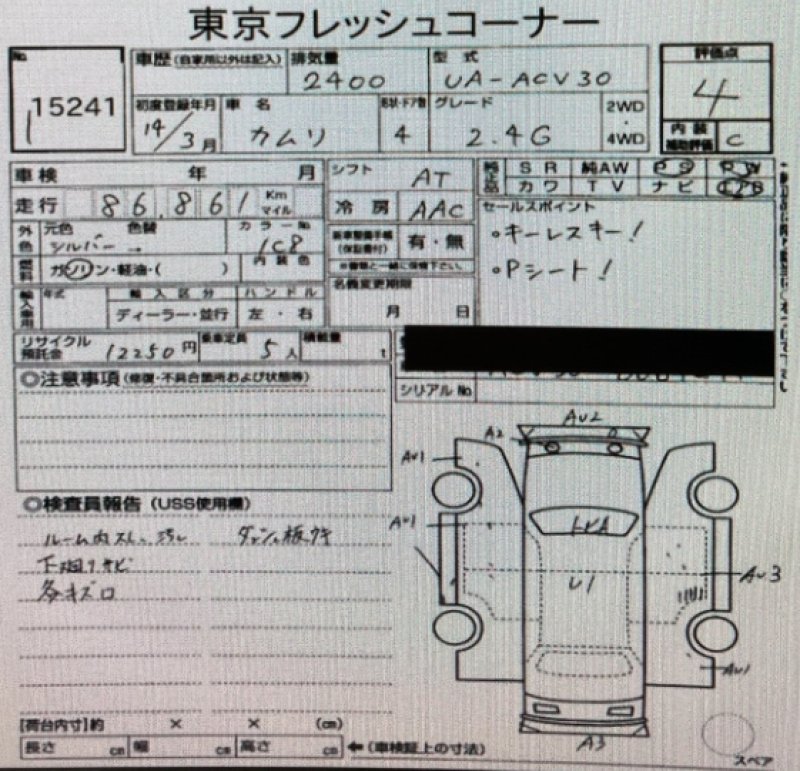 東京フレッシュコーナー
No.
15241
車歴(自家用以外は記入)
排気量
2400
型式
UA-ACV30
評価点
4
初度登録年月
14/3月
車名
カムリ
形状・ドア数
4
グレード
2.4G
2WD
・
4WD
内装
補助評価
C
車検 年 月
走行 86,861 Km マイル
シフト
AT
冷房
AAC
純正品
SR 純AW PS PW
カワ TV ナビ
外色
元色 シルバー
色替 →
カラーNo.
1C8
新車整備手帳
(保証書付)
有・無
※書類と一緒に保管下さい。
セールスポイント
・キーレスキー!
・Pシート!
燃料
ガソリン・軽油・( )
内装色
名義変更期限
月 日
輸入車用
年式
輸入区分
ディーラー・並行
ハンドル
左・右
リサイクル
預託金
12250円
乗車定員
5人
積載量
t
シリアルNo.
◎注意事項(修復・不具合箇所および状態等)
◎検査員報告(USS使用欄)
ダッシュ板ウキ
下廻りサビ
各キズ凹
AU2
A2
AU1
AU1
U1
AU3
AU1
A3
スペア
[荷台内寸]約 × × (㎝)
長さ ㎝ 幅 ㎝ 高さ ㎝ ←(車検証上の寸法)